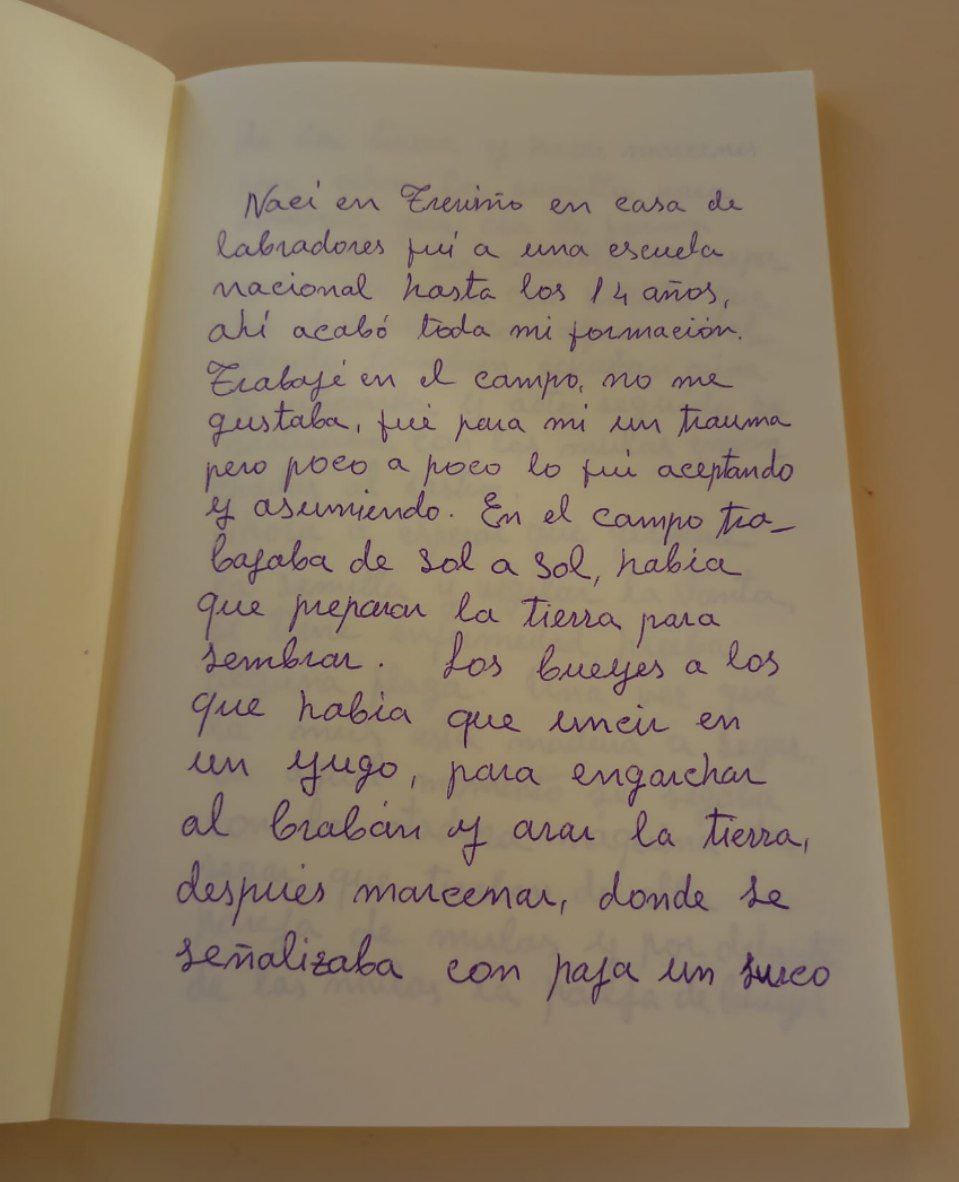 Nací en Treviño en casa de
labradores fuí a una escuela
nacional hasta los 14 años,
ahí acabó toda mi formación.
Trabajé en el campo, no me
gustaba, fué para mi un trauma
pero poco a poco lo fuí aceptando
y asumiendo. En el campo tra_
bajaba de sol a sol, había
que preparar la tierra para
sembrar. Los bueyes a los
que había que uncir en
un yugo, para engarchar
al brabán y arar la tierra,
después marcenar, donde se
señalizaba con paja un surco